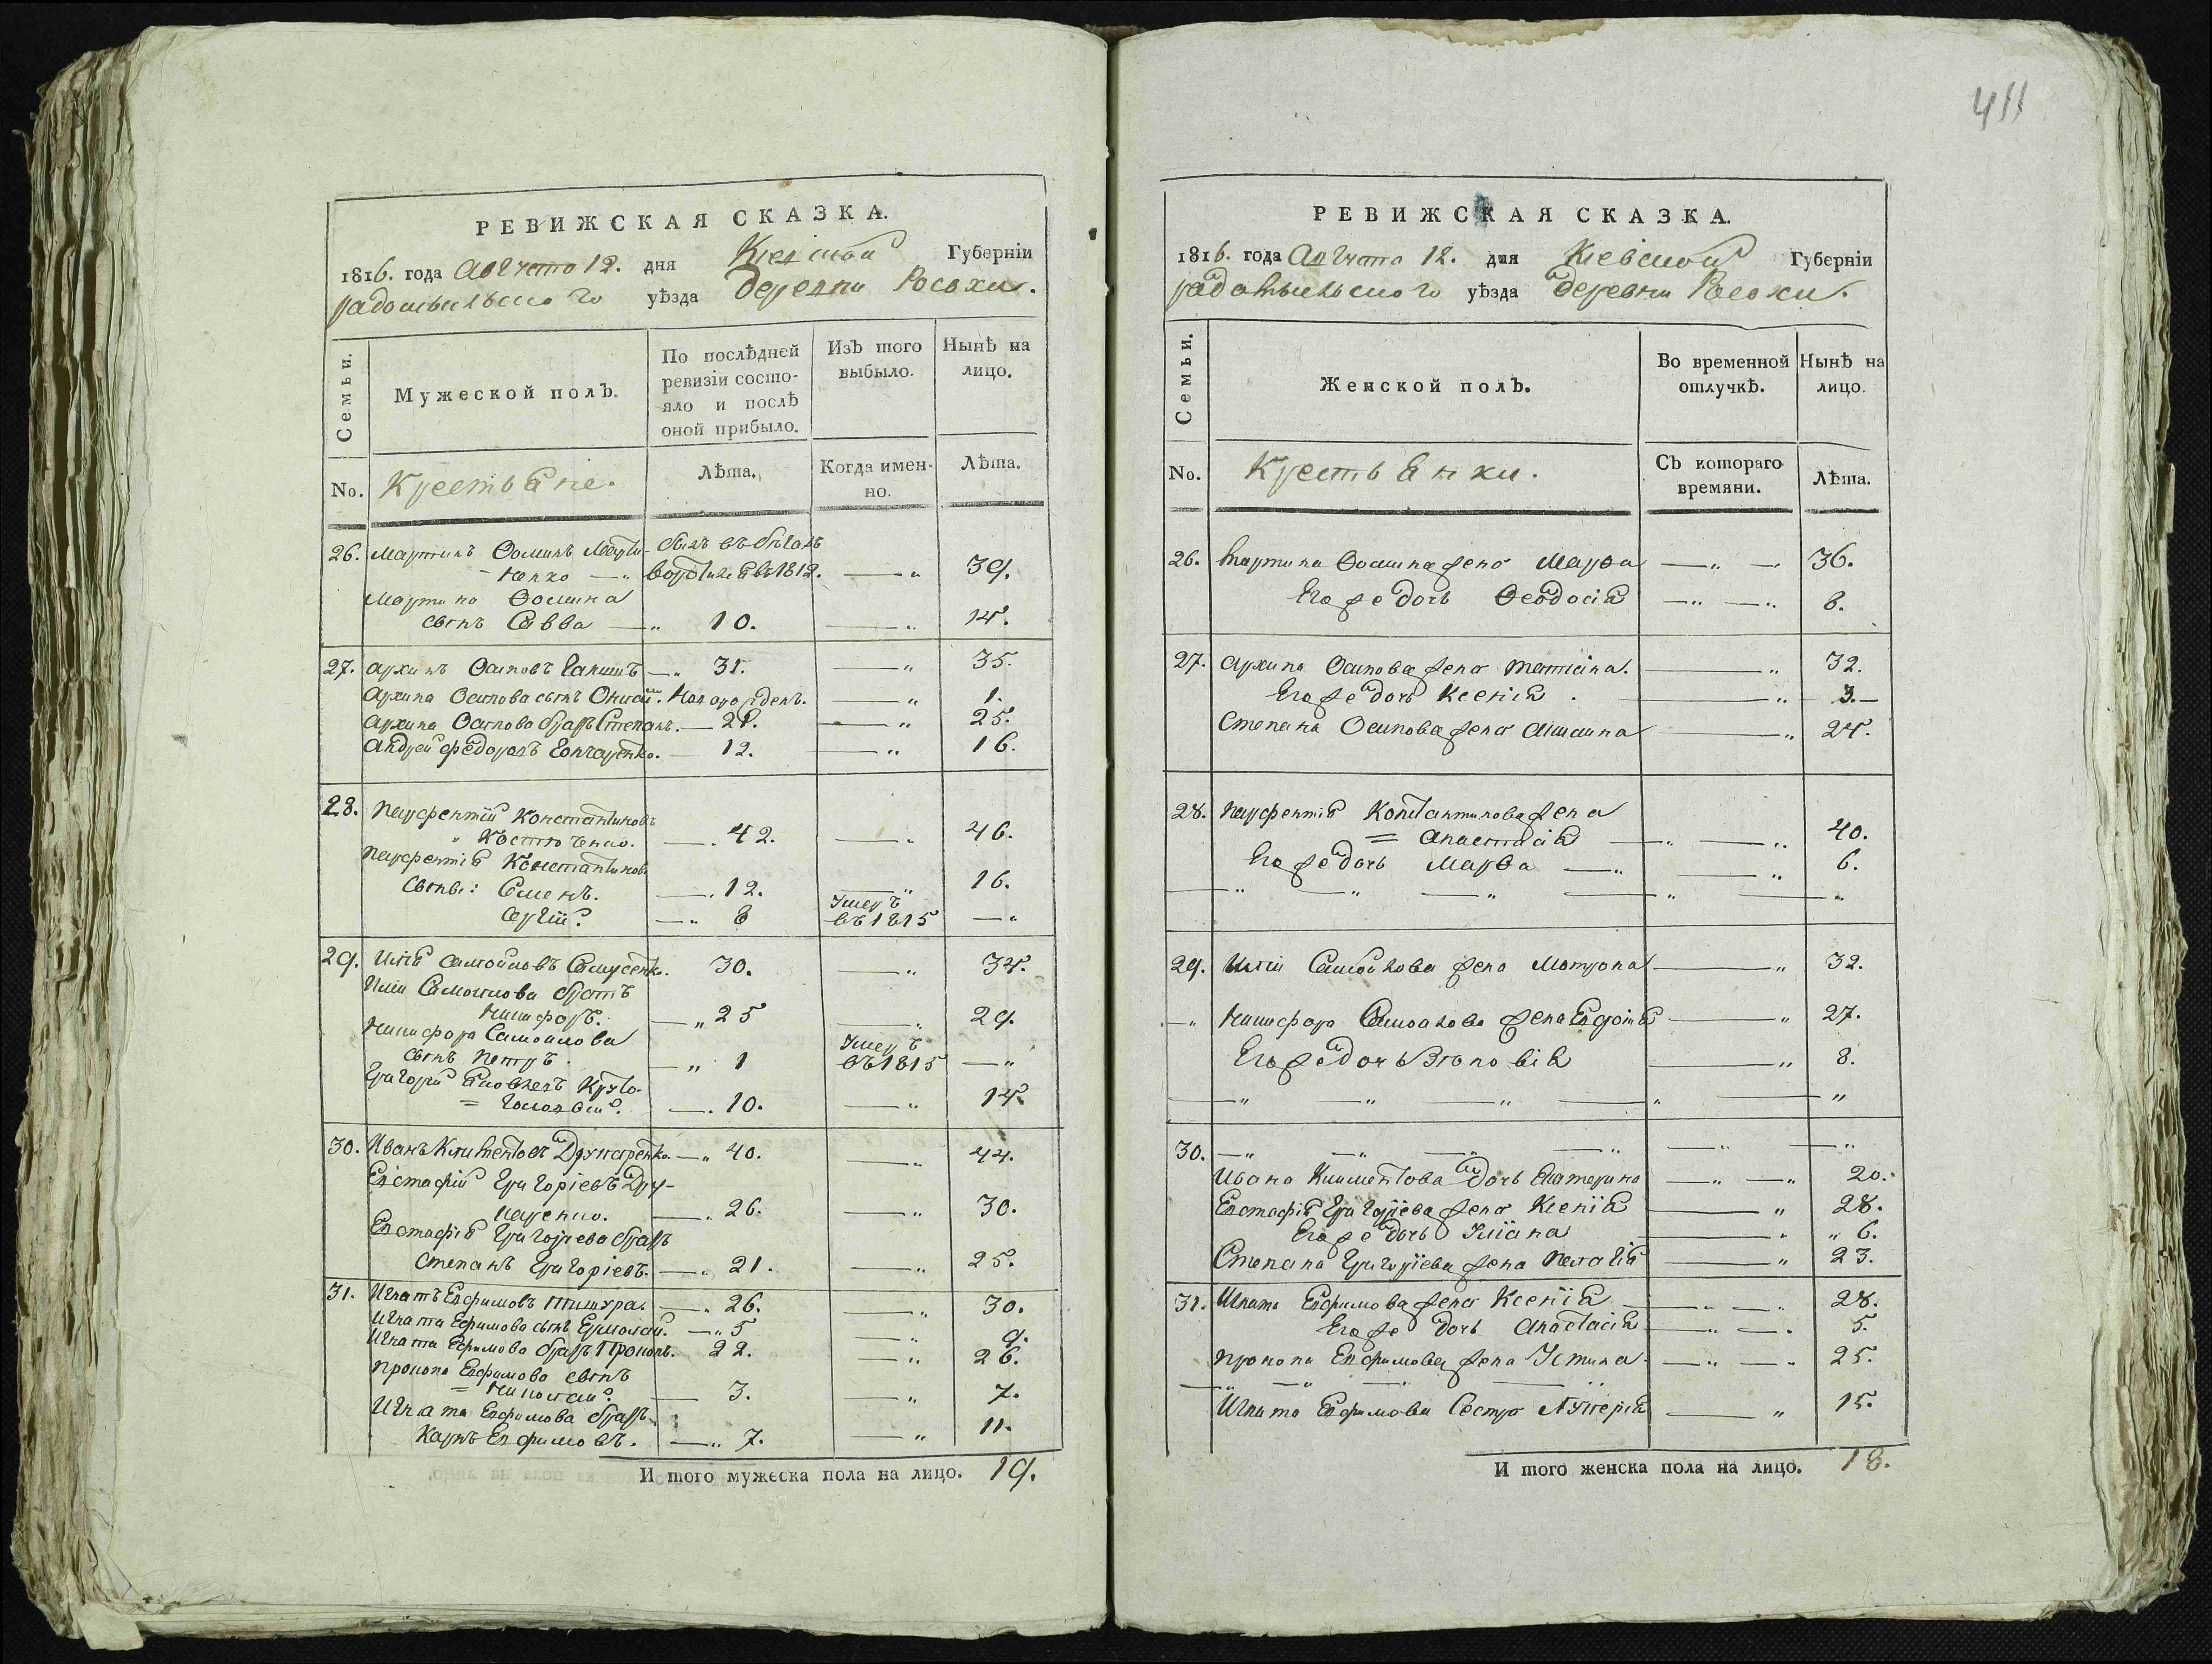 РЕВИЖСКАЯ СКАЗКА.
1816. года Августа 12. дня Кіевской Губерніи
радомыльского уѣзда деревни Росохи.
Семьи.
Мужеской полъ.
По послѣдней ревизіи состояло и послѣ оной прибыло.
Изъ того выбыло.
Нынѣ на лицо.
No. Крестьяне.
Лѣта.
Когда именно.
Лѣта.
26. Мартинъ Ѳоминъ Марты- былъ въ бѣгахъ
ненко —„ воротился въ 1812. —„ 39.
Мартина Ѳомина
сынъ Савва —„ 10. —„ 14.
27. Архипъ Осиповъ —„ 31. —„ 35.
Архипа Осипова сынъ новорожденъ. —„ 1.
Архипа Осипова братъ Степанъ. — 21. —„ 25.
Андрей Федоровъ Гончаренко. — 12. —„ 16.
28. Парфентій Константиновъ
„ Костюченко. —„ 42. —„ 46.
Парфентія Константинова
сыны: Семенъ. —„ 12. —„ 16.
Сергій. —„ 8 Умеръ въ 1815 —„
29. Илія Самойловъ Самусенко. 30. —„ 34.
Иліи Самойлова братъ
Никифоръ. —„ 25 —„ 29.
Никифора Самойлова
сынъ Петръ. —„ 1 Умеръ въ 1815 —„
Григорій Яковлевъ Круто-
= головый. —„ 10. —„ 14.
30. Иванъ Климентовъ —„ 40. —„ 44.
Евстафій Григоріевъ
—„ 26. —„ 30.
Евстафія Григоріева братъ
Степанъ Григоріевъ. —„ 21. —„ 25.
31. Игнатъ Евфимовъ —„ 26. —„ 30.
Игната Ефимова сынъ Ермолай. —„ 5 —„ 9.
Игната Ефимова братъ Прокопъ. 22. —„ 26.
Прокопа Евфимова сынъ
= Николай. — 3. —„ 7.
Игната Евфимова братъ
Карпъ Евфимовъ. —„ 7. —„ 11.
И того мужеска пола на лицо. 19.
411
РЕВИЖСКАЯ СКАЗКА.
1816. года Августа 12. дня Кіевской Губерніи
радомыльского уѣзда деревни Росохи.
Семьи.
Женской полъ.
Во временной отлучкѣ.
Нынѣ на лицо.
No. Крестьянки.
Съ котораго времяни.
Лѣта.
26. Мартина Ѳомина жена Марѳа —„ —„ 36.
Его же дочь Ѳеодосія —„ —„ 8.
27. Архипа Осипова жена Татіана. —„ 32.
Его же дочь Ксенія. —„ 3.—
Степана Осипова жена —„ 24.
28. Парфентія Константинова жена
= Анастасія —„ —„ 40.
Его же дочь Марѳа —„ —„ 6.
29. Иліи Самойлова жена Матрона —„ 32.
—„ Никифора Самойлова жена Евдотія —„ 27.
Его же дочь Зѣновія —„ 8.
30. —„ —„ —„ —„ —„ —„
Ивана Климентова дочь Екатерина —„ —„ 20.
Евстафія Григоріева жена Ксенія —„ 28.
Его же дочь Уліана —„ „ 6.
Степана Григоріева жена Пелагія —„ 23.
31. Игната Евфимова жена Ксенія —„ —„ 28.
Его же дочь Анастасія —„ —„ 5.
Прокопа Евфимова жена Устина —„ —„ 25.
Игната Евфимова сестра Лукерія —„ 15.
И того женска пола на лицо. 18.